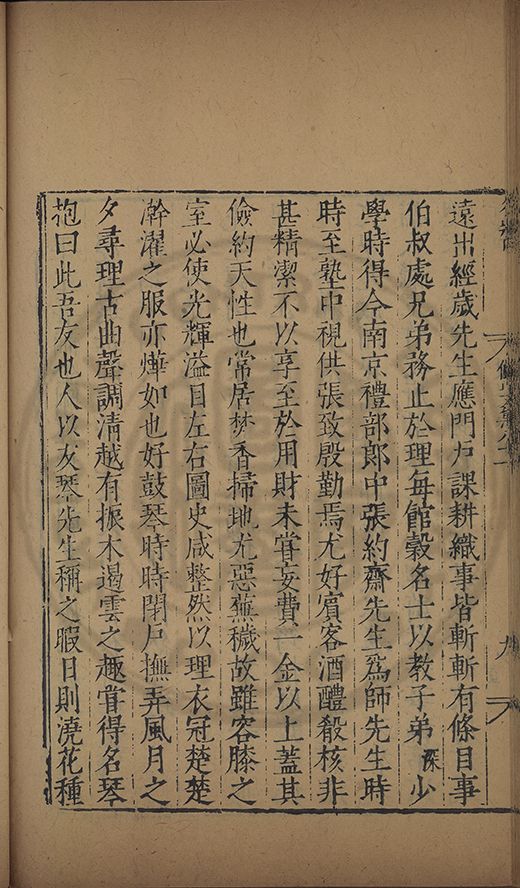 遠出經歲先生應門戶課耕織事皆斬斬有條目事
伯叔處兄弟務止於理每館穀名士以教子弟 深 少
學時得今南京禮部郎中張約齋先生爲師先生時
時至塾中視供張致殷勤焉尤好賓客酒醴殽核非
甚精潔不以享至於用財未嘗妄費一金以上蓋其
儉約天性也常居焚香掃地尤惡蕪穢故雖容膝之
室必使光輝溢目左右圖史咸整然以理衣冠楚楚
澣濯之服亦燁如也好鼓琴時時閉戶撫弄風月之
夕尋理古曲聲調清越有振木遏雲之趣嘗得名琴
抱曰此吾友也人以友琴先生稱之暇日則澆花種